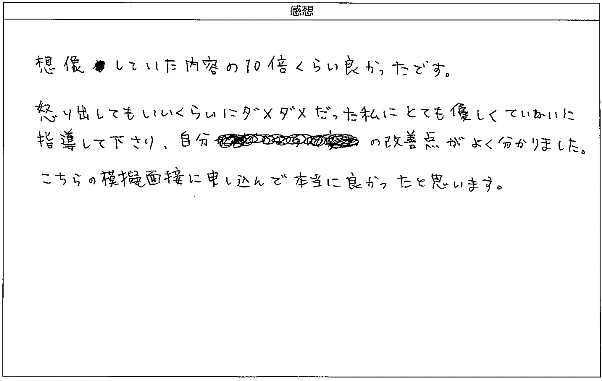 感想
想像していた内容の10倍くらい良かったです。
怒り出してもいいくらいにダメダメだった私にとても優しくていねいに
指導して下さり、自分の改善点がよく分かりました。
こちらの模擬面接に申し込んで本当に良かったと思います。